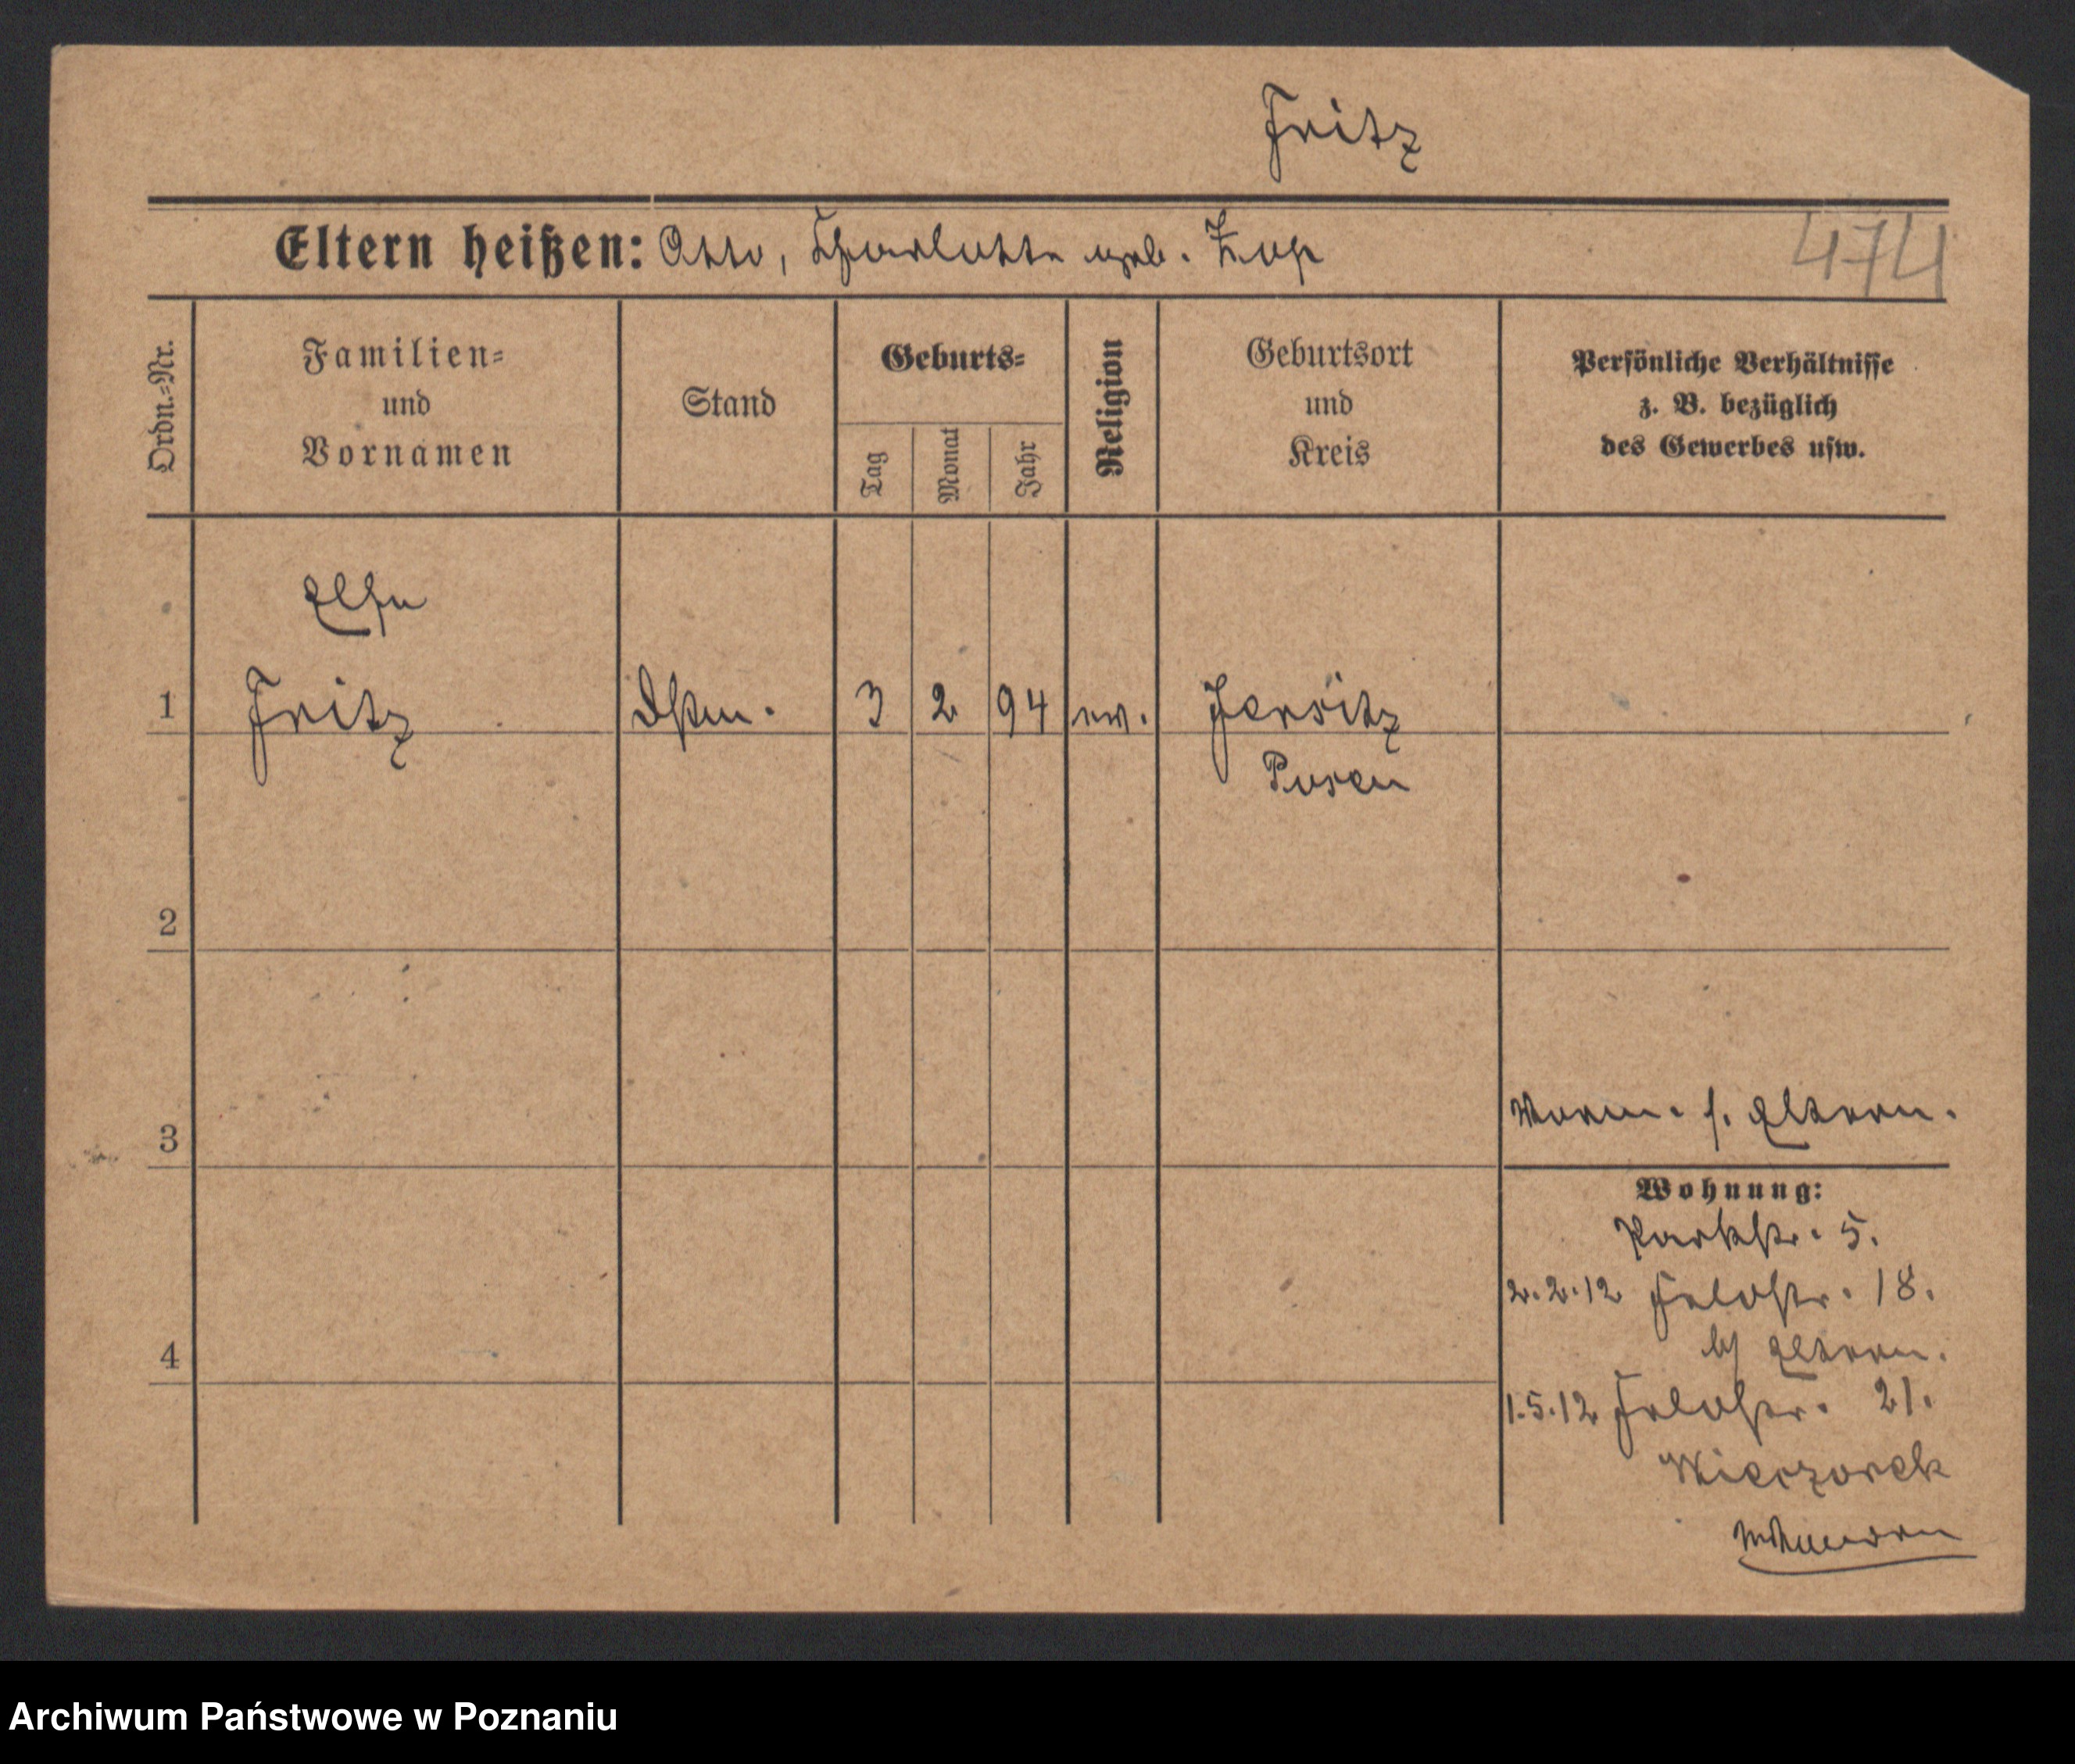 Fritz
Eltern heißen: Otto, Charlotte geb. Zop
474
Ordn.-Nr.
Familien-
und
Vornamen
Stand
Geburts-
Tag
Monat
Jahr
Religion
Geburtsort
und
Kreis
Persönliche Verhältnisse
z. B. bezüglich
des Gewerbes usw.
Else
1 Fritz 3 2 94 ev. Jersitz
Posen
2
3
Vorm. s. Eltern.
Wohnung:
Parkstr. 5.
2.2.12 Feldstr. 18.
b/ Eltern.
4
1.5.12 Feldstr. 21.
Wieczorek
Archiwum Państwowe w Poznaniu